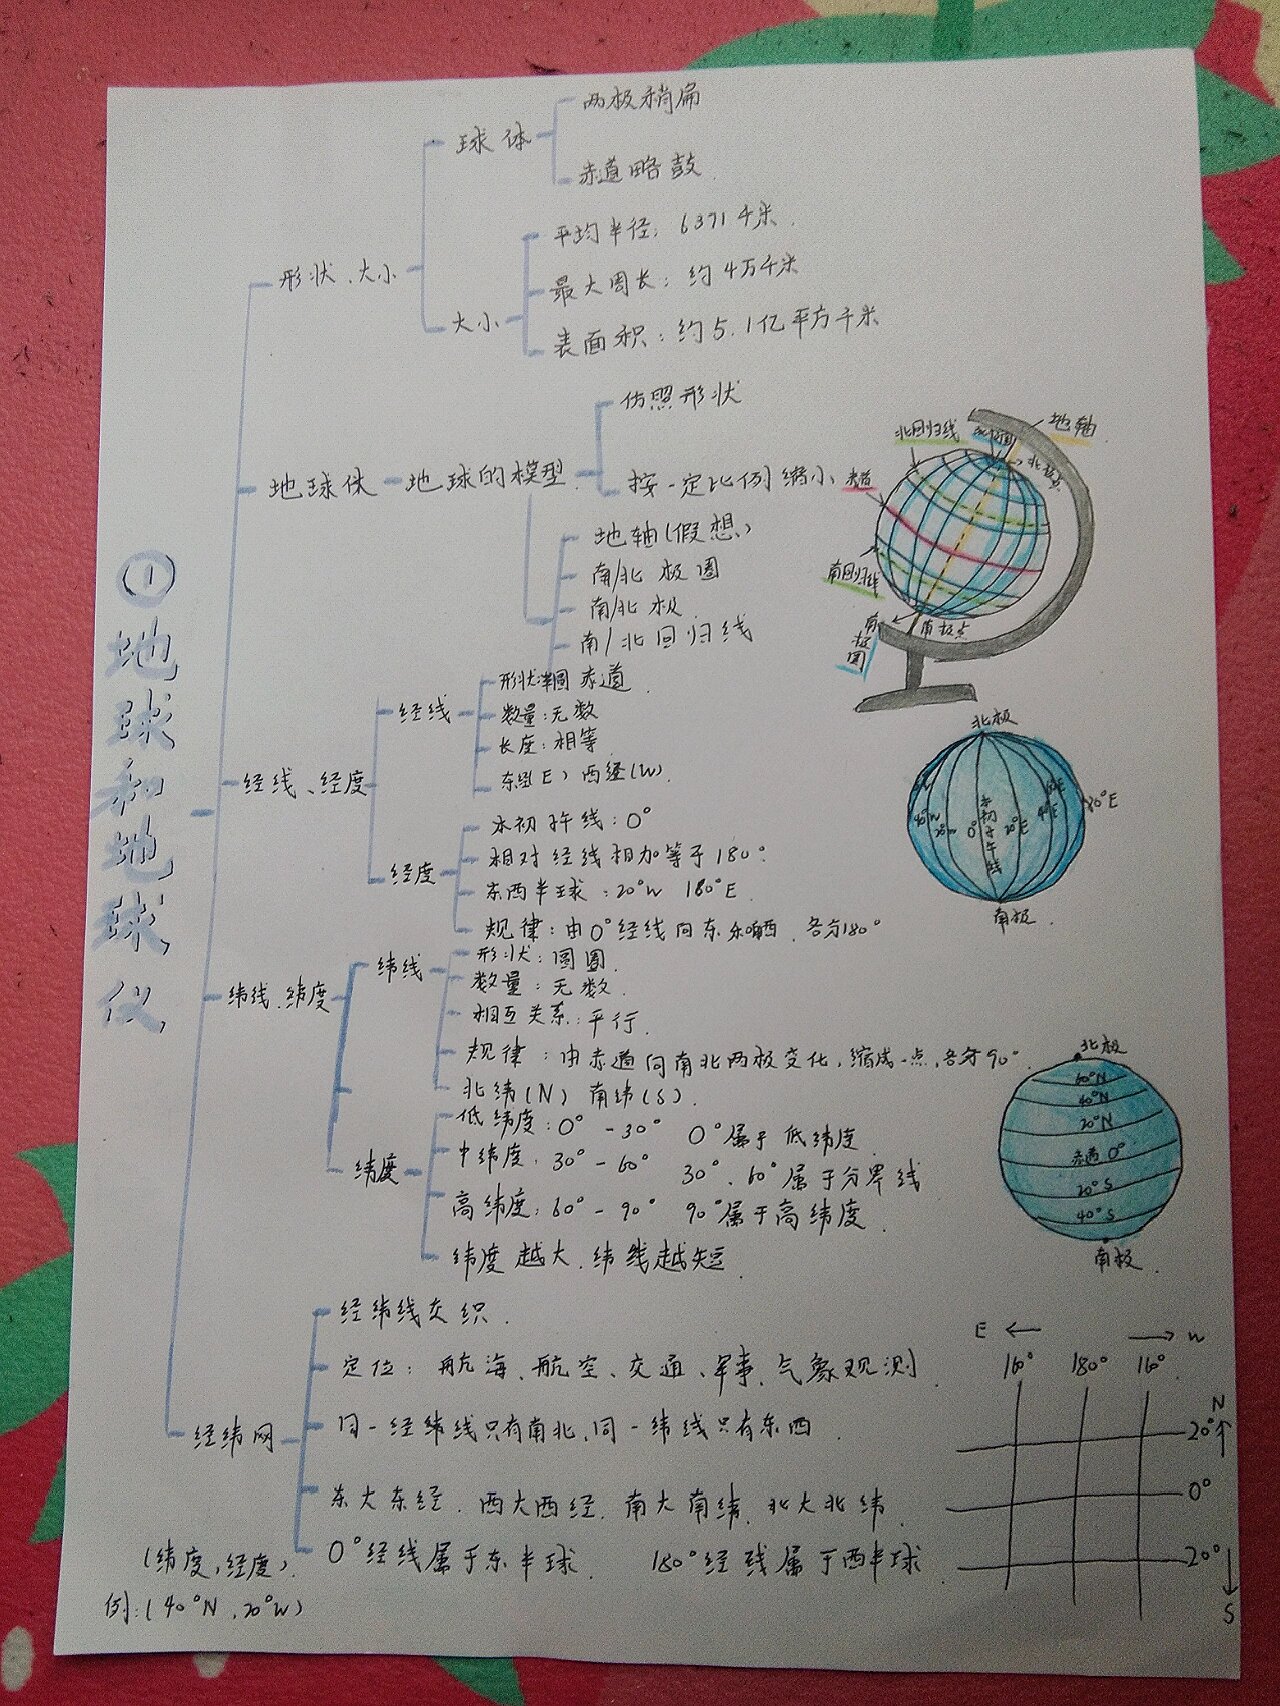 ①地球和地球仪
形状、大小
球体
两极稍扁
赤道略鼓
大小
平均半径：6371千米
最大周长：约4万千米
表面积：约5.1亿平方千米
地球体
地球的模型
仿照形状
按一定比例缩小
地轴(假想)
南/北极圈
南/北极
南/北回归线
赤道
北回归线
地轴
赤道
南回归线
南极圈
南极点
经线、经度
经线
形状:半圆
数量:无数
长度:相等
东经(E) 西经(W)
经度
本初子午线:0°
相对经线相加等于180°
东西半球:20°W 180°E
规律:由0°经线向东 西 各分180°
北极
40°W
20°W
0°
本初子午线
20°E
40°E
180°E
南极
纬线、纬度
纬线
形状:圆圈
数量:无数
相互关系:平行
规律:由赤道向南北两极变化,缩成一点,各分90°
北纬(N) 南纬(S)
纬度
低纬度:0°-30° 0°属于低纬度
中纬度:30°-60° 30°、60°属于分界线
高纬度:60°-90° 90°属于高纬度
纬度越大、纬线越短
北极
60°N
40°N
20°N
赤道 0°
20°S
40°S
南极
经纬网
经纬线交织
定位:航海、航空、交通、军事、气象观测
同一经纬线只有南北,同一纬线只有东西
东大东经、西大西经、南大南纬、北大北纬
0°经线属于东半球 180°经线属于西半球
(纬度,经度)
例:(40°N,20°W)
E ← → W
160° 180° 160°
N
20°
0°
20°
S